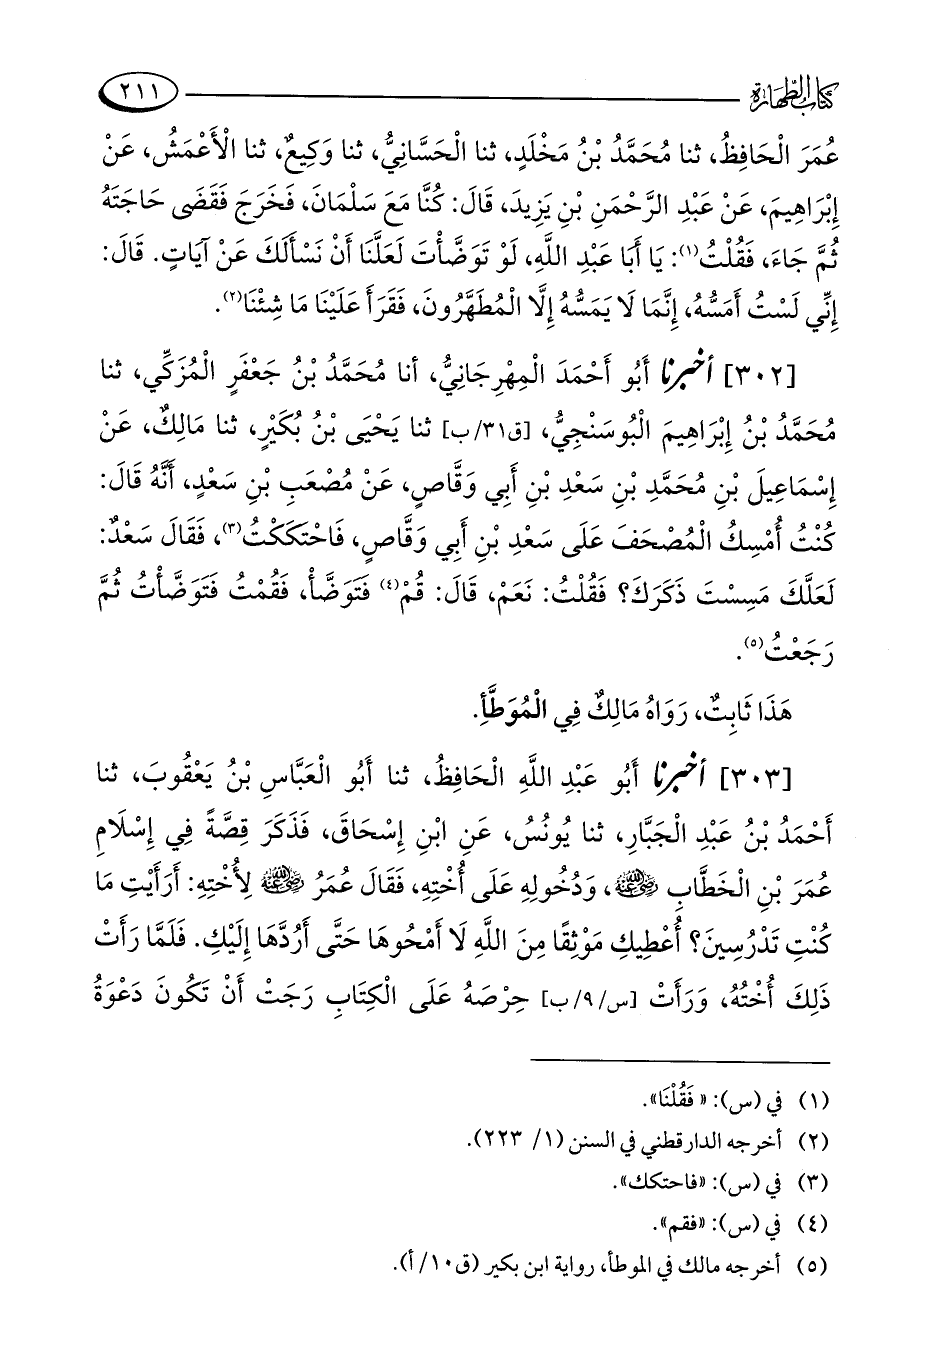 كتاب الطهارة ٢١١
عُمَرَ الْحَافِظُ، ثنا مُحَمَّدُ بْنُ مَخْلَدٍ، ثنا الْحَسَّانِيُّ، ثنا وَكِيعٌ، ثنا الْأَعْمَشُ، عَنْ
إِبْرَاهِيمَ، عَنْ عَبْدِ الرَّحْمَنِ بْنِ يَزِيدَ، قَالَ: كُنَّا مَعَ سَلْمَانَ، فَخَرَجَ فَقَضَى حَاجَتَهُ
ثُمَّ جَاءَ، فَقُلْتُ(١): يَا أَبَا عَبْدِ اللَّهِ، لَوْ تَوَضَّأْتَ لَعَلَّنَا أَنْ نَسْأَلَكَ عَنْ آيَاتٍ. قَالَ:
إِنِّي لَسْتُ أَمَسُّهُ، إِنَّمَا لَا يَمَسُّهُ إِلَّا الْمُطَهَّرُونَ، فَقَرَأَ عَلَيْنَا مَا شِئْنَا(٢).
[٣٠٢] أخبرنا أَبُو أَحْمَدَ الْمِهْرِجَانِيُّ، أنا مُحَمَّدُ بْنُ جَعْفَرٍ الْمُزَكِّي، ثنا
مُحَمَّدُ بْنُ إِبْرَاهِيمَ الْبُوسَنْجِيُّ، [ق٣١/ب] ثنا يَحْيَى بْنُ بُكَيْرٍ، ثنا مَالِكٌ، عَنْ
إِسْمَاعِيلَ بْنِ مُحَمَّدِ بْنِ سَعْدِ بْنِ أَبِي وَقَّاصٍ، عَنْ مُصْعَبِ بْنِ سَعْدٍ، أَنَّهُ قَالَ:
كُنْتُ أُمْسِكُ الْمُصْحَفَ عَلَى سَعْدِ بْنِ أَبِي وَقَّاصٍ، فَاحْتَكَكْتُ(٣)، فَقَالَ سَعْدٌ:
لَعَلَّكَ مَسِسْتَ ذَكَرَكَ؟ فَقُلْتُ: نَعَمْ، قَالَ: قُمْ(٤) فَتَوَضَّأْ، فَقُمْتُ فَتَوَضَّأْتُ ثُمَّ
رَجَعْتُ(٥).
هَذَا ثَابِتٌ، رَوَاهُ مَالِكٌ فِي الْمُوَطَّأِ.
[٣٠٣] أخبرنا أَبُو عَبْدِ اللَّهِ الْحَافِظُ، ثنا أَبُو الْعَبَّاسِ بْنُ يَعْقُوبَ، ثنا
أَحْمَدُ بْنُ عَبْدِ الْجَبَّارِ، ثنا يُونُسُ، عَنِ ابْنِ إِسْحَاقَ، فَذَكَرَ قِصَّةً فِي إِسْلَامِ
عُمَرَ بْنِ الْخَطَّابِ رضي الله عنه، وَدُخُولِهِ عَلَى أُخْتِهِ، فَقَالَ عُمَرُ رضي الله عنه لِأُخْتِهِ: أَرَأَيْتِ مَا
كُنْتِ تَدْرُسِينَ؟ أُعْطِيكِ مَوْثِقًا مِنَ اللَّهِ لَا أَمْحُوهَا حَتَّى أَرُدَّهَا إِلَيْكِ. فَلَمَّا رَأَتْ
ذَلِكَ أُخْتُهُ، وَرَأَتْ [س/٩/ب] حِرْصَهُ عَلَى الْكِتَابِ رَجَتْ أَنْ تَكُونَ دَعْوَةُ
(١) في (س): «فَقُلْنَا».
(٢) أخرجه الدارقطني في السنن (١/ ٢٢٣).
(٣) في (س): «فاحتكك».
(٤) في (س): «فقم».
(٥) أخرجه مالك في الموطأ، رواية ابن بكير (ق١٠/أ).